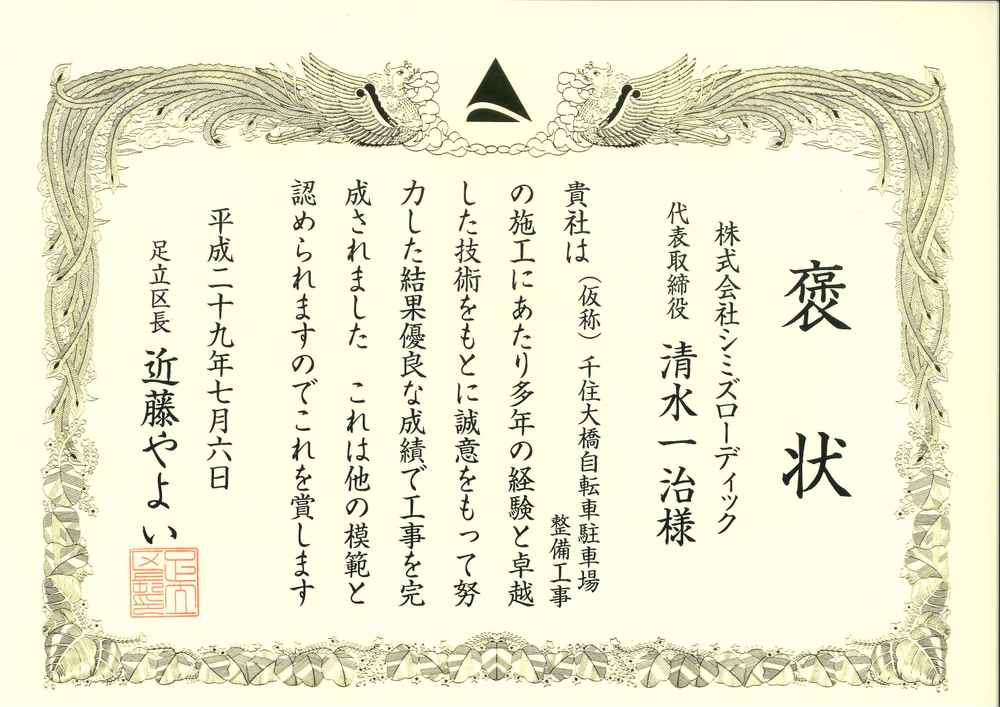 褒状
株式会社シミズローディック
代表取締役 清水一治様
貴社は(仮称)千住大橋自転車駐車場
整備工事
の施工にあたり多年の経験と卓越
した技術をもとに誠意をもって努
力した結果優良な成績で工事を完
成されました これは他の模範と
認められますのでこれを賞します
平成二十九年七月六日
足立区長 近藤やよい